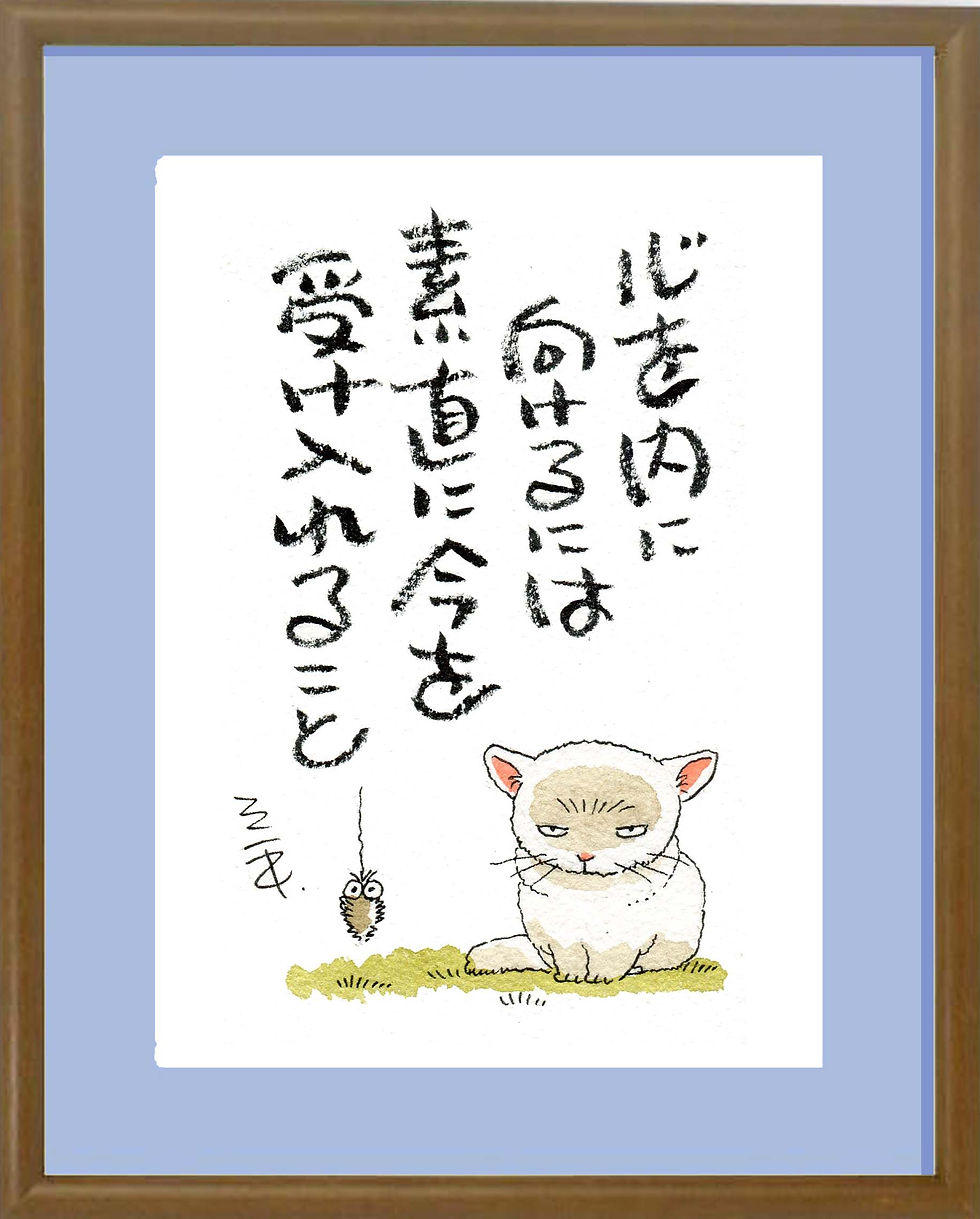 心を内に
向けるには
素直に今を
受け入れること